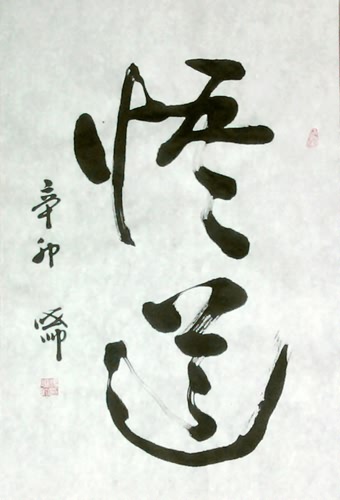 悟道
辛卯